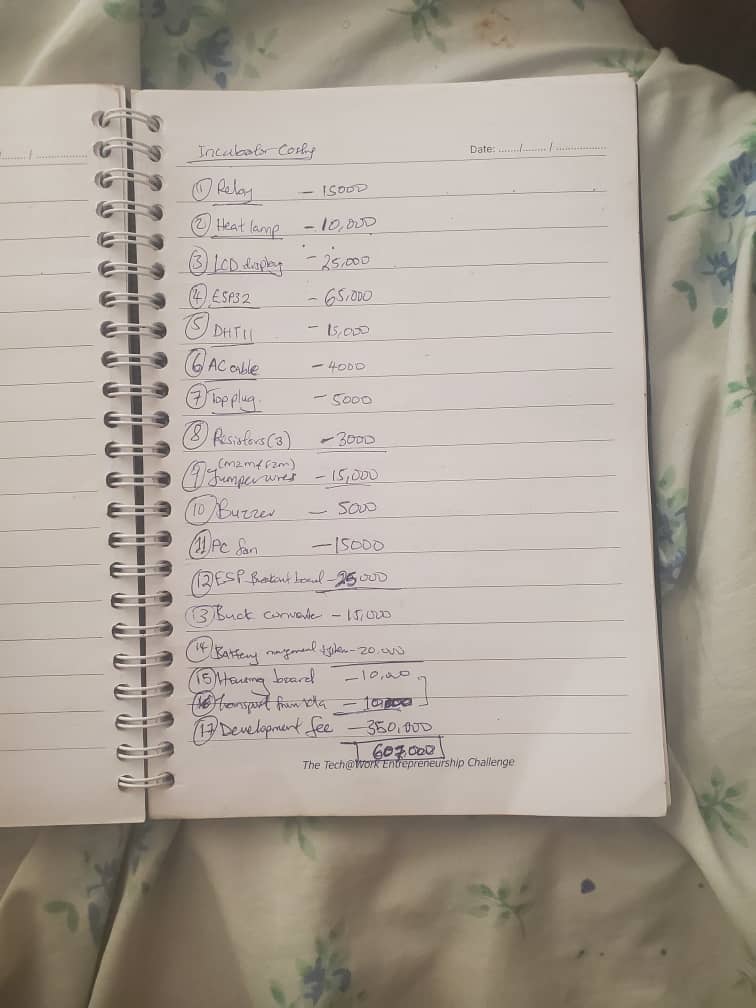 ....../ ...............
Incubator Costing
Date: ....../......../ ...............
1 Relay - 15000
2 Heat lamp - 10,000
3 LCD display - 25,000
4 ESP32 - 65,000
5 DHT11 - 15,000
6 AC cable - 4000
7 Top plug. - 5000
8 Resistors (3) - 3000
(m2m & f2m)
9 Jumper wires - 15,000
10 Buzzer - 5000
11 PC fan - 15000
12 ESP Breakout board - 25000
13 Buck converter - 15,000
14 Battery management system - 20,000
15 Housing board - 10,000
16 transport from - 10,000
17 Development fee - 350,000
607,000
The Tech@Work Entrepreneurship Challenge